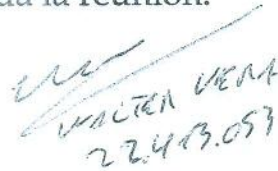 da la reunión.
WALTER VERA
22.413.053